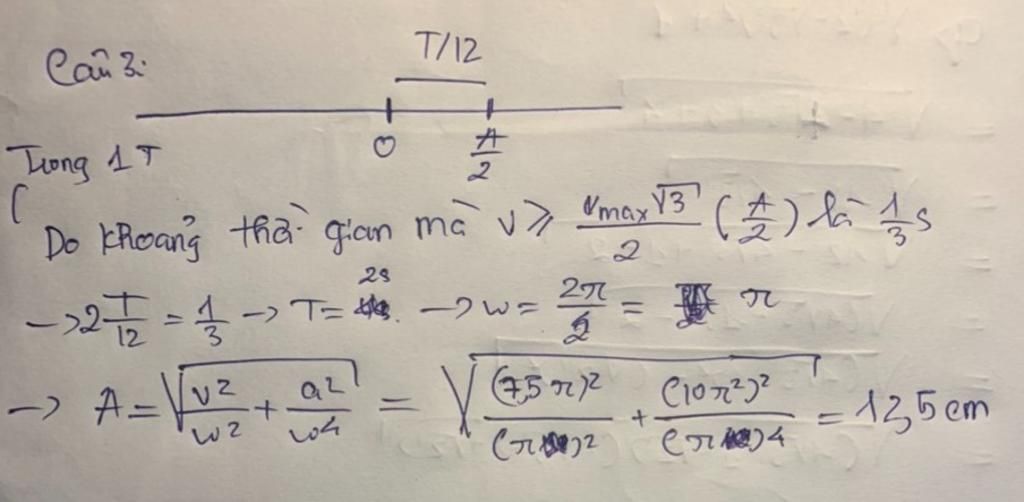 Câu 3:
T/12
O A/2
Trong 1 T
( Do khoảng thời gian mà v ≥ vmax√3/2 (A/2) là 1/3 s
→ 2 T/12 = 1/3 → T = 2s → w = 2π/2 = π
→ A = √(v²/w² + a²/w⁴) = √((7,5π)²/(π)² + (10π²)²/(π)⁴) = 12,5 cm